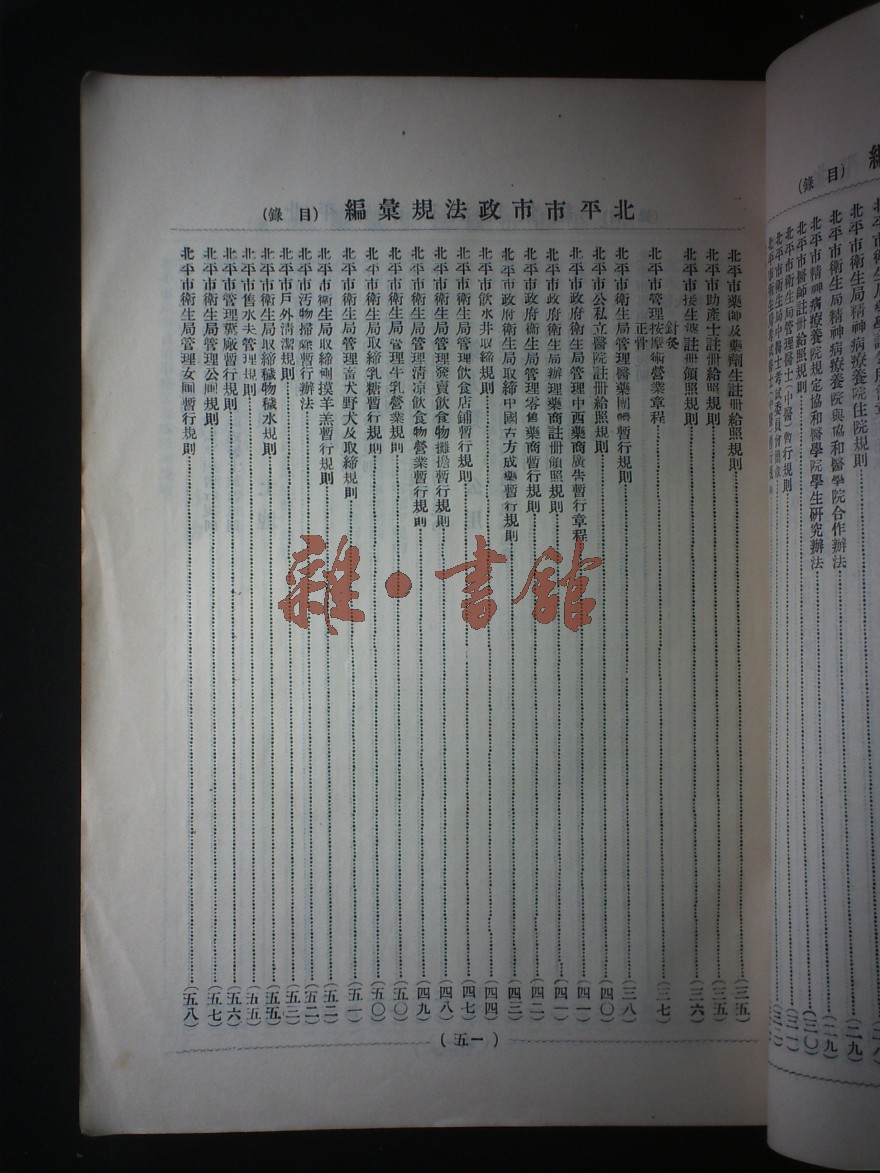 北平市市政法規彙編 (目錄)
北平市藥師及藥劑生註冊給照規則 (三五)
北平市助產士註冊給照規則 (三五)
北平市接生婆註冊領照規則 (三六)
北平市管理按摩術針灸正骨營業章程 (三七)
北平市衛生局管理醫藥團體暫行規則 (三八)
北平市公私立醫院註冊給照規則 (四〇)
北平市政府衛生局管理中西藥商廣告暫行章程 (四一)
北平市政府衛生局辦理藥商註冊領照規則 (四一)
北平市政府衛生局管理零售藥商暫行規則 (四二)
北平市政府衛生局取締中國古方成藥暫行規則 (四三)
北平市飲水井取締規則 (四四)
北平市衛生局管理飲食店鋪暫行規則 (四七)
北平市衛生局管理發賣飲食物攤擔暫行規則 (四八)
北平市衛生局管理清凉飲食物營業暫行規則 (四九)
北平市衛生局管理牛乳營業規則 (五〇)
北平市衛生局取締乳糖暫行規則 (五〇)
北平市衛生局管理畜犬野犬及取締規則 (五一)
北平市衛生局取締捫摸羊羔暫行規則 (五二)
北平市汚物掃除暫行辦法 (五二)
北平市戶外清潔規則 (五三)
北平市衛生局取締穢物穢水規則 (五五)
北平市售水夫管理規則 (五五)
北平市管理糞廠暫行規則 (五六)
北平市衛生局管理公厠規則 (五七)
北平市衛生局管理女厠暫行規則 (五八)
(五一)
(目錄)
北平市衛生局精神病療養院住院規則 (二九)
北平市衛生局精神病療養院與協和醫學院合作辦法 (二九)
北平市精神病療養院規定協和醫學院學生研究辦法 (三〇)
北平市醫師註冊給照規則
北平市衛生局管理醫士(中醫)暫行規則
雜·書館